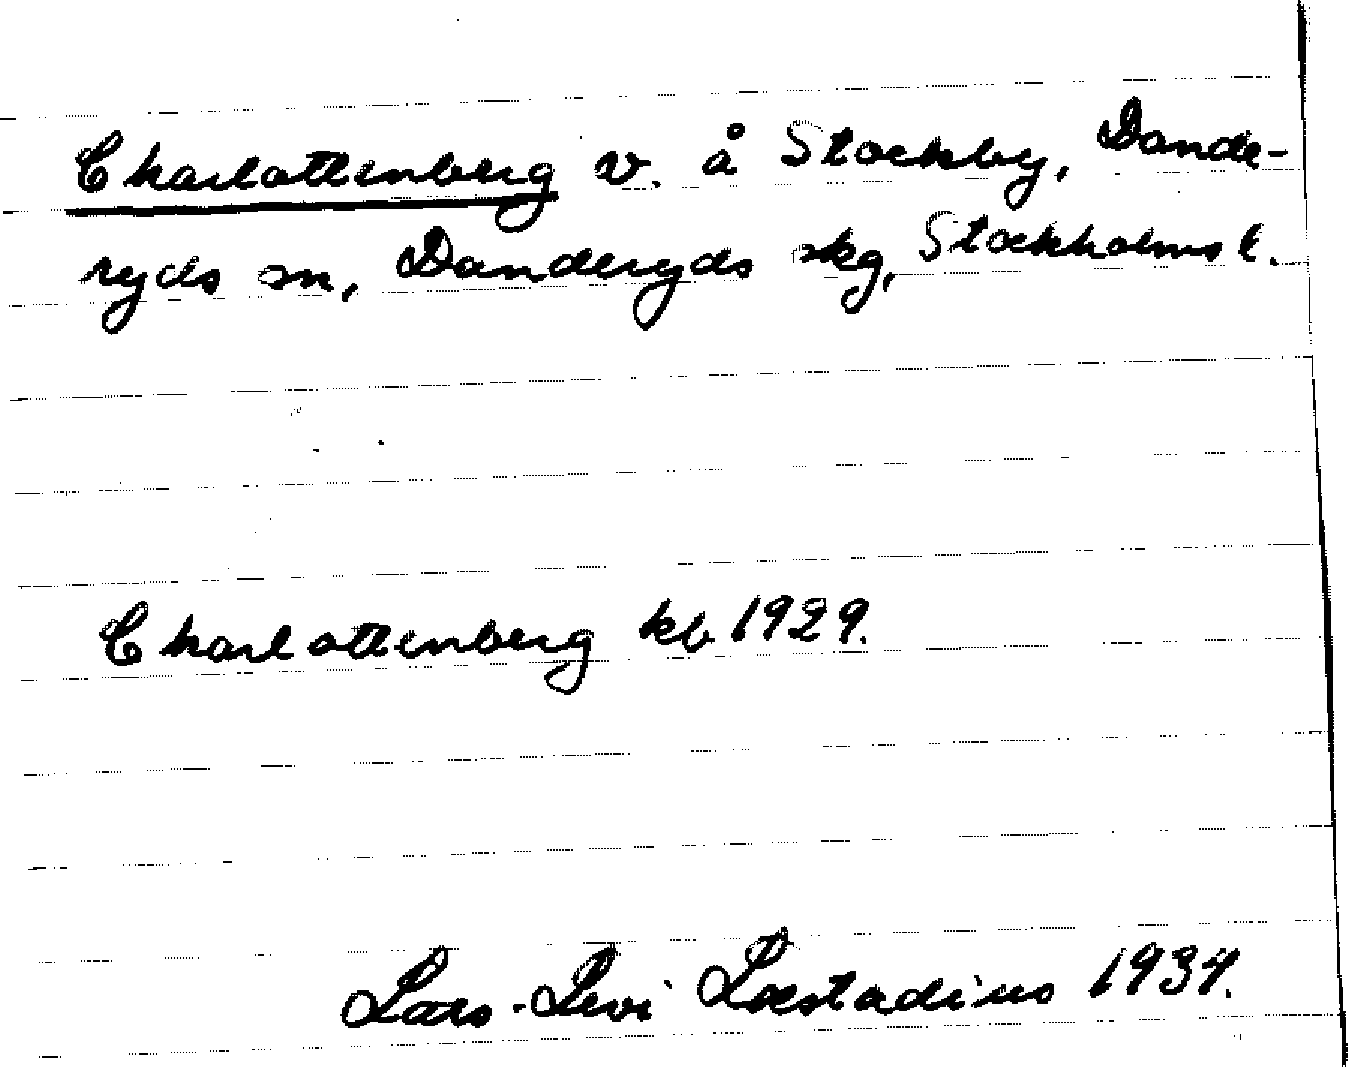 Charlottenberg v. å Stockby, Dande-
ryds sn, Danderyds skg, Stockholms l.
Charlottenberg kb 1929.
Lars-Levi Læstadius 1934.